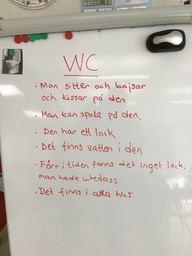 WC
· Man sitter och bajsar
och kissar på den
· Man kan spola på den.
· Den har ett lock
· Det finns vatten i den
· Förr i tiden fanns det inget lock,
man hade utedass
· Det finns i alla hus